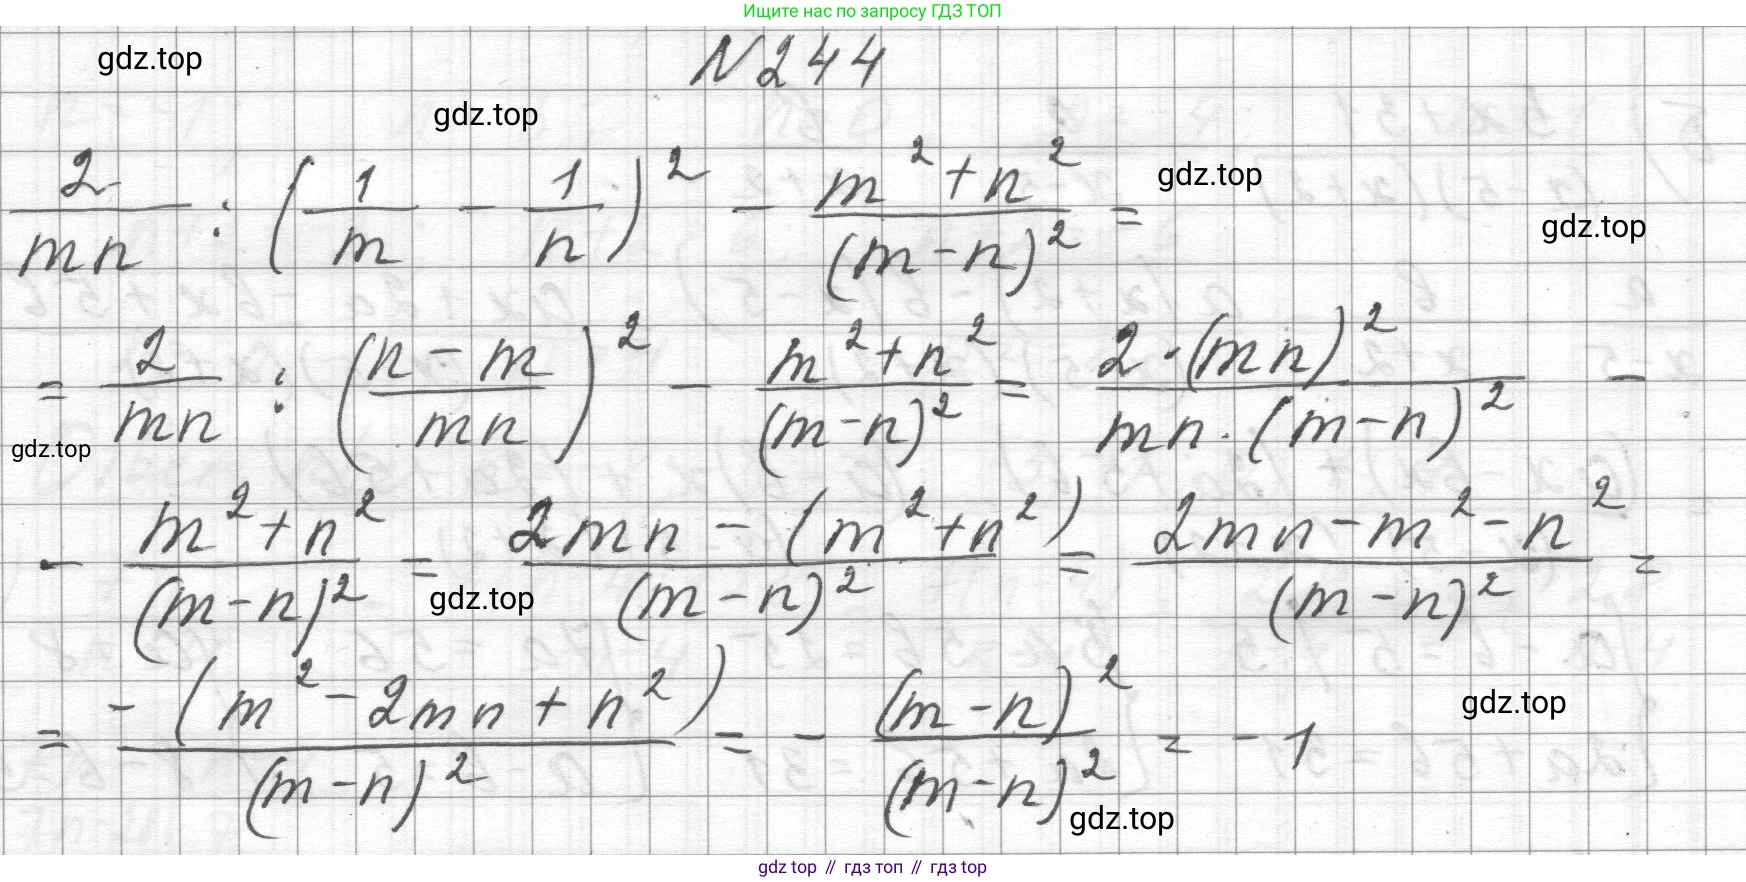 Ищите нас по запросу ГДЗ ТОП
gdz.top
N 244
gdz.top
2/mn : (1/m - 1/n)² - (m² + n²)/(m - n)² =
gdz.top
gdz.top
= 2/mn : ((n - m)/mn)² - (m² + n²)/(m - n)² = (2 · (mn)²)/(mn · (m - n)²) -
gdz.top
- (m² + n²)/(m - n)² = (2mn - (m² + n²))/(m - n)² = (2mn - m² - n²)/(m - n)² =
gdz.top
= (-(m² - 2mn + n²))/(m - n)² = - (m - n)²/(m - n)² = - 1
gdz.top
gdz.top
gdz top // гдз топ // gdz top